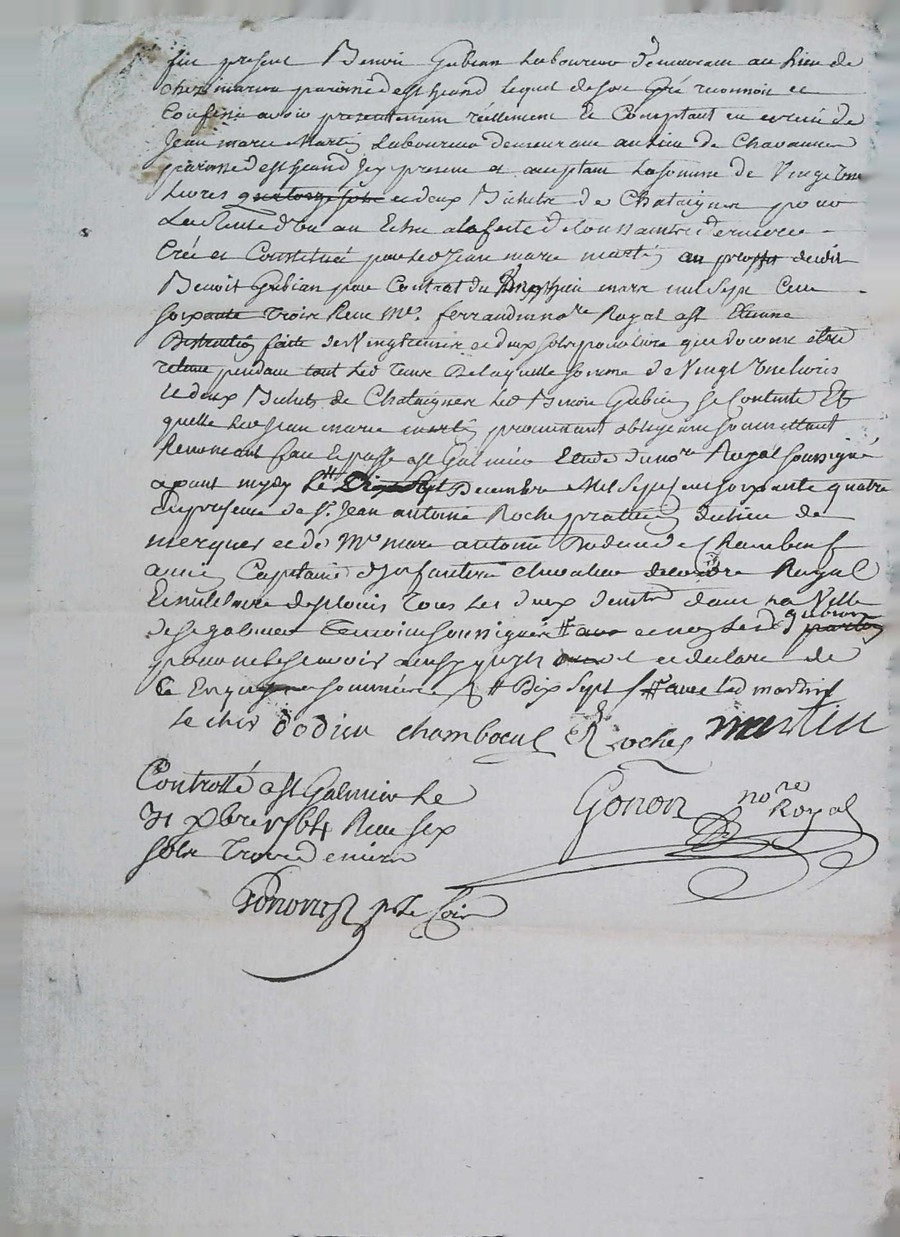 fut present Benoit Gubian Laboureur demeurant au Lieu de
chez marion paroisse d'est heand lequel de son Gré reconnoit et
Confesse avoir presentement reellement et Comptant eu et receu de
Jean marie Martin Laboureur demeurant au Lieu de Chavannes
paroisse d'est heand Jcy present et acceptant La somme de Vingt
Livres quatorze sols et deux Bichets de Chataignes pour
La Rente d'un an Echue a la feste de tous saints derniere
Créé et Constitué par led Jean marie martin au proffit dudit
Benoit Gubian par Contrat du mars mil Sept Cent
soixante trois Receu Me. ferrandin nore Royal a st Etienne
Distraction faite des Vingtiemes et deux sols pour livre que doivent être
retenus pendant tout led Tems De laquelle somme de Vingt Livres
et deux Bichets de Chataignes led Benoit Gubian se Contente Et
quitte led Jean marie martin promettant obligeant soumettant
Renonceant fait et passé a st Galmier Etude du nore Royal soussigné
avant mydy Le Dix Sept Decembre Mil Sept Cent soixante quatre
En presence de Sr. Jean antoine Roche praticien du lieu de
et de Mre marc antoine Dodieu de Chambeuf
ancien Capitaine d'Infanterie chevalier de l'ordre Royal
Et militaire de st Louis Tous les deux dans la Ville
de st galmier Temoins soussignés et non led gubian
pour ne le scavoir ainsy qu'il a declaré de
Ce Enquis et sommé # Dix Sept # avec led martin
le cher dodieu chambœuf Roche martin
Controllé a st Galmier Le
31 Xbre 1764 Receu six
sols Trois deniers
Gonon nore Royal